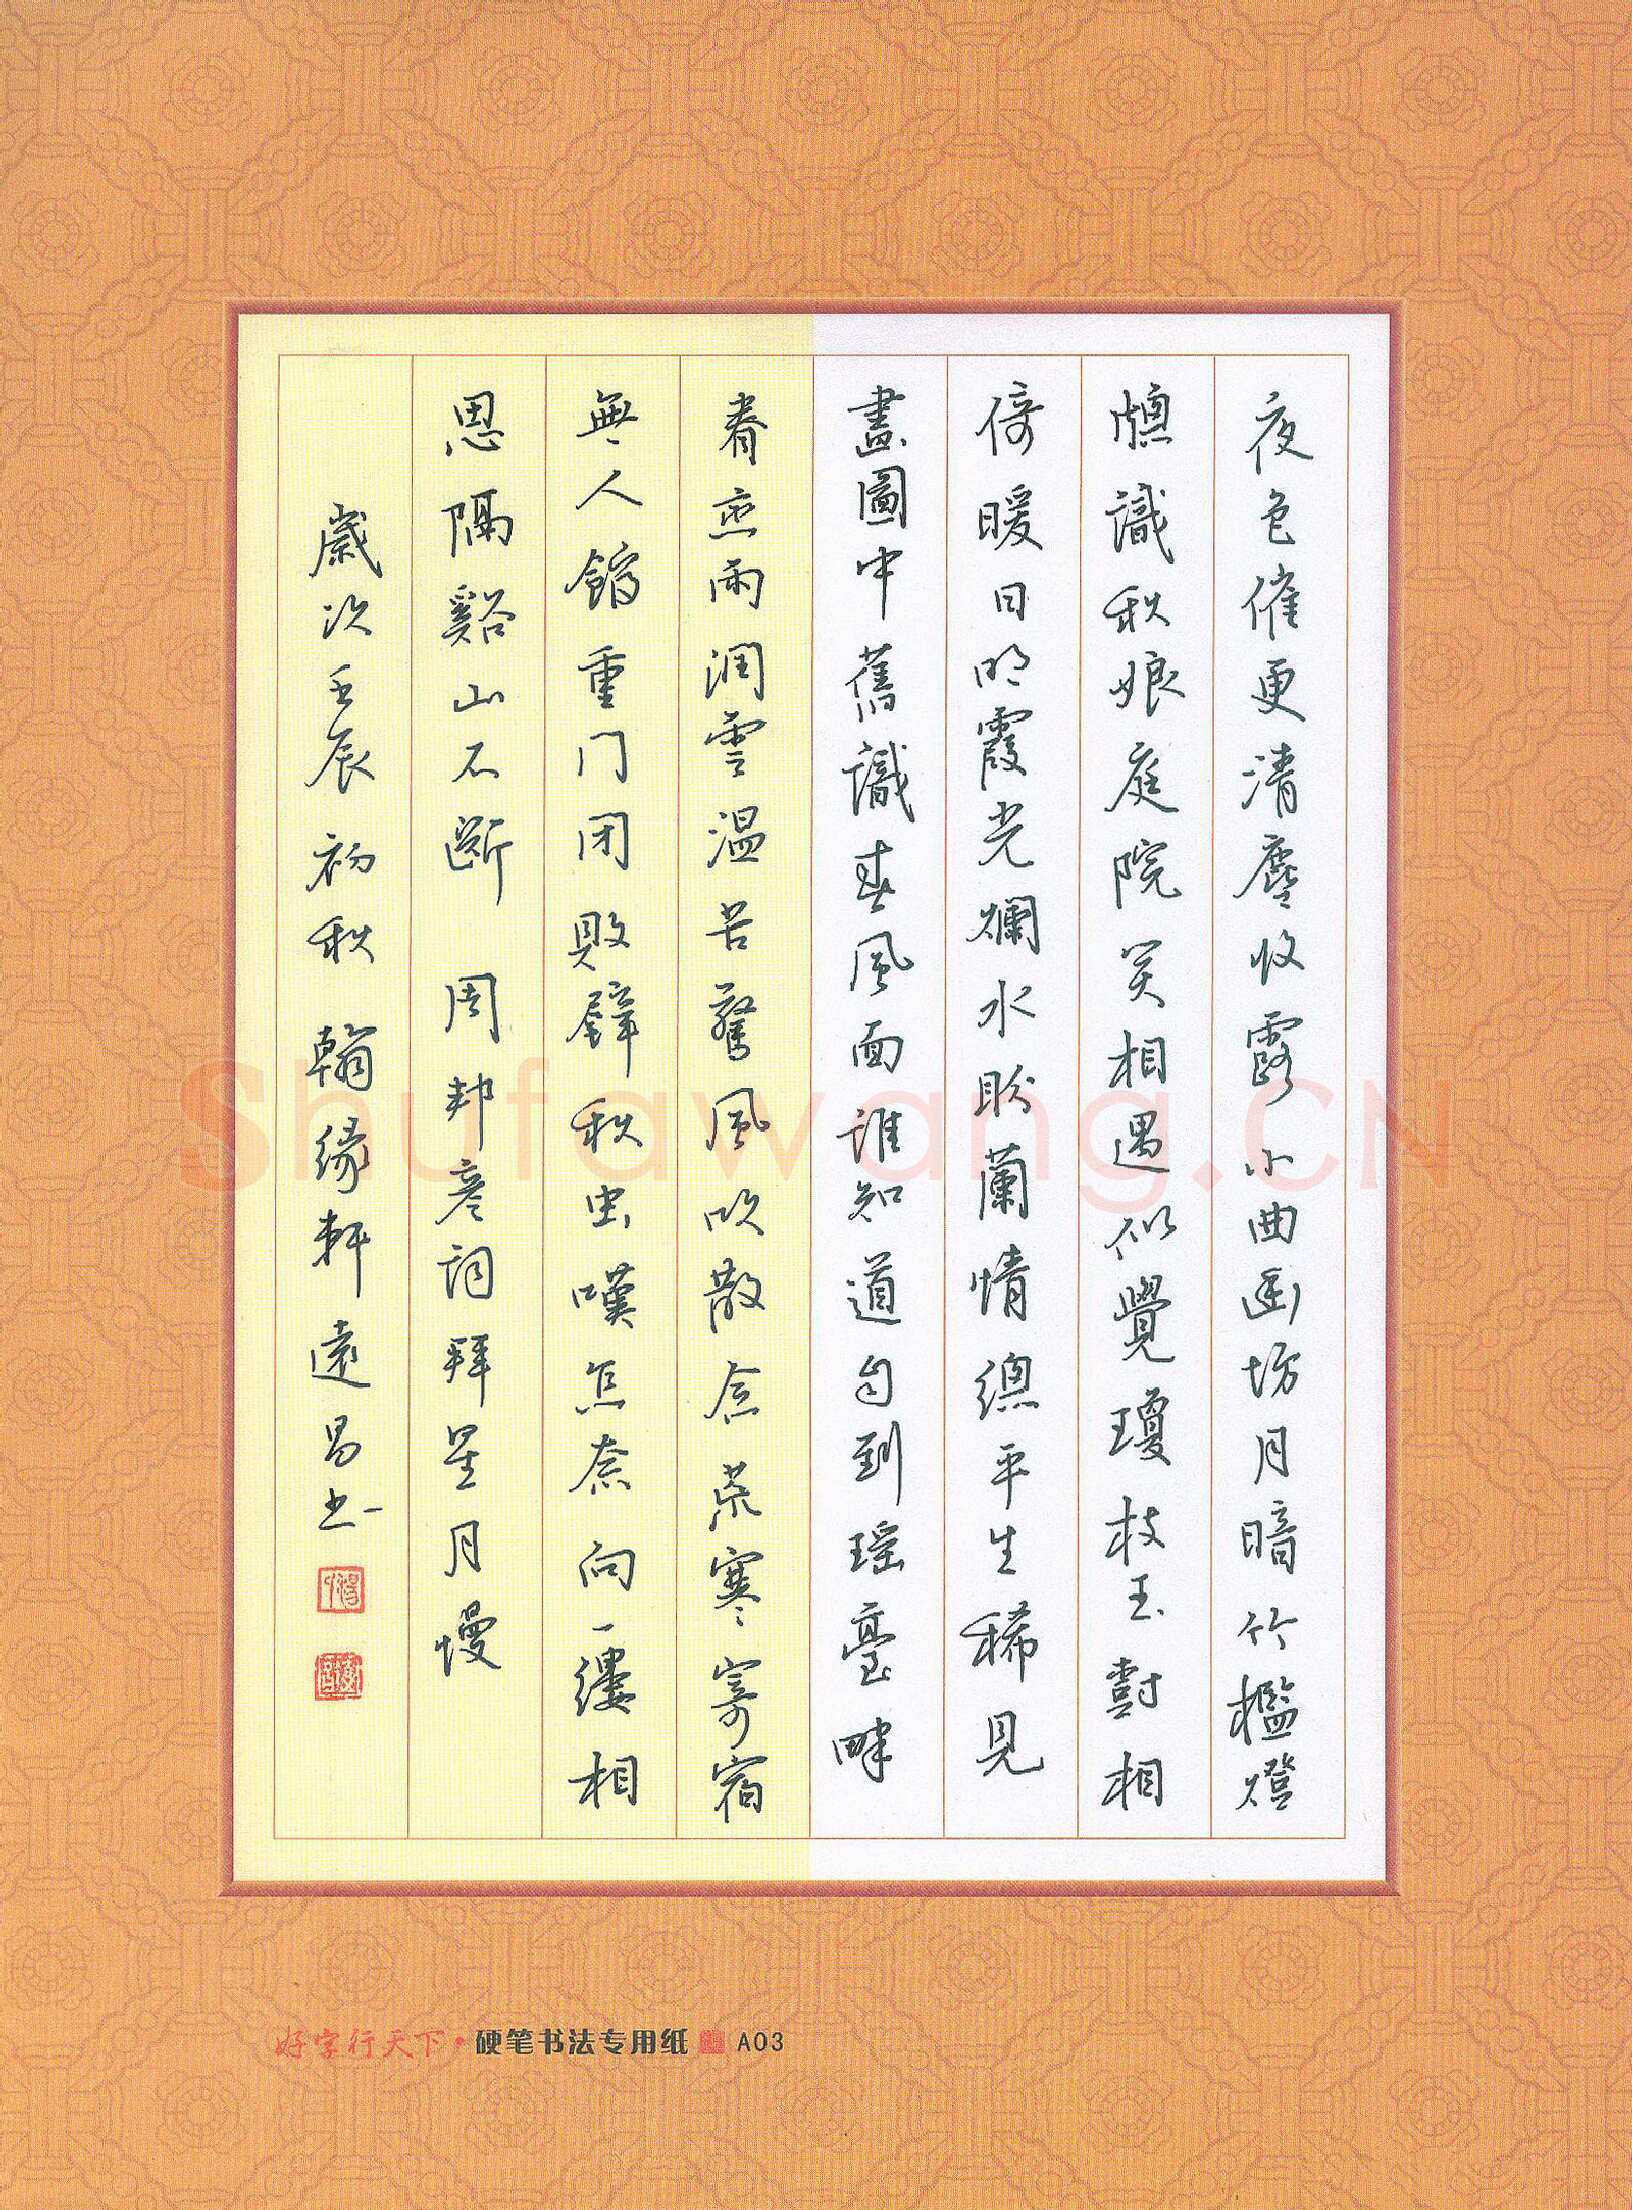 夜色催更清塵收露小曲幽坊月暗竹檻燈
牕識秋娘庭院笑相遇似覺瓊枝玉樹相
倚暖日明霞光爛水盼蘭情總平生稀見
畫圖中舊識春風面誰知道自到瑶臺畔
眷戀雨潤雲温苦驚風吹散念荒寒寄宿
無人館重门闭敗壁秋虫嘆怎奈向一縷相
思隔谿山不斷 周邦彦詞拜星月慢
歲次壬辰初秋翰緣軒遠昌书
好字行天下·硬笔书法专用纸 A03
Shufawang.CN